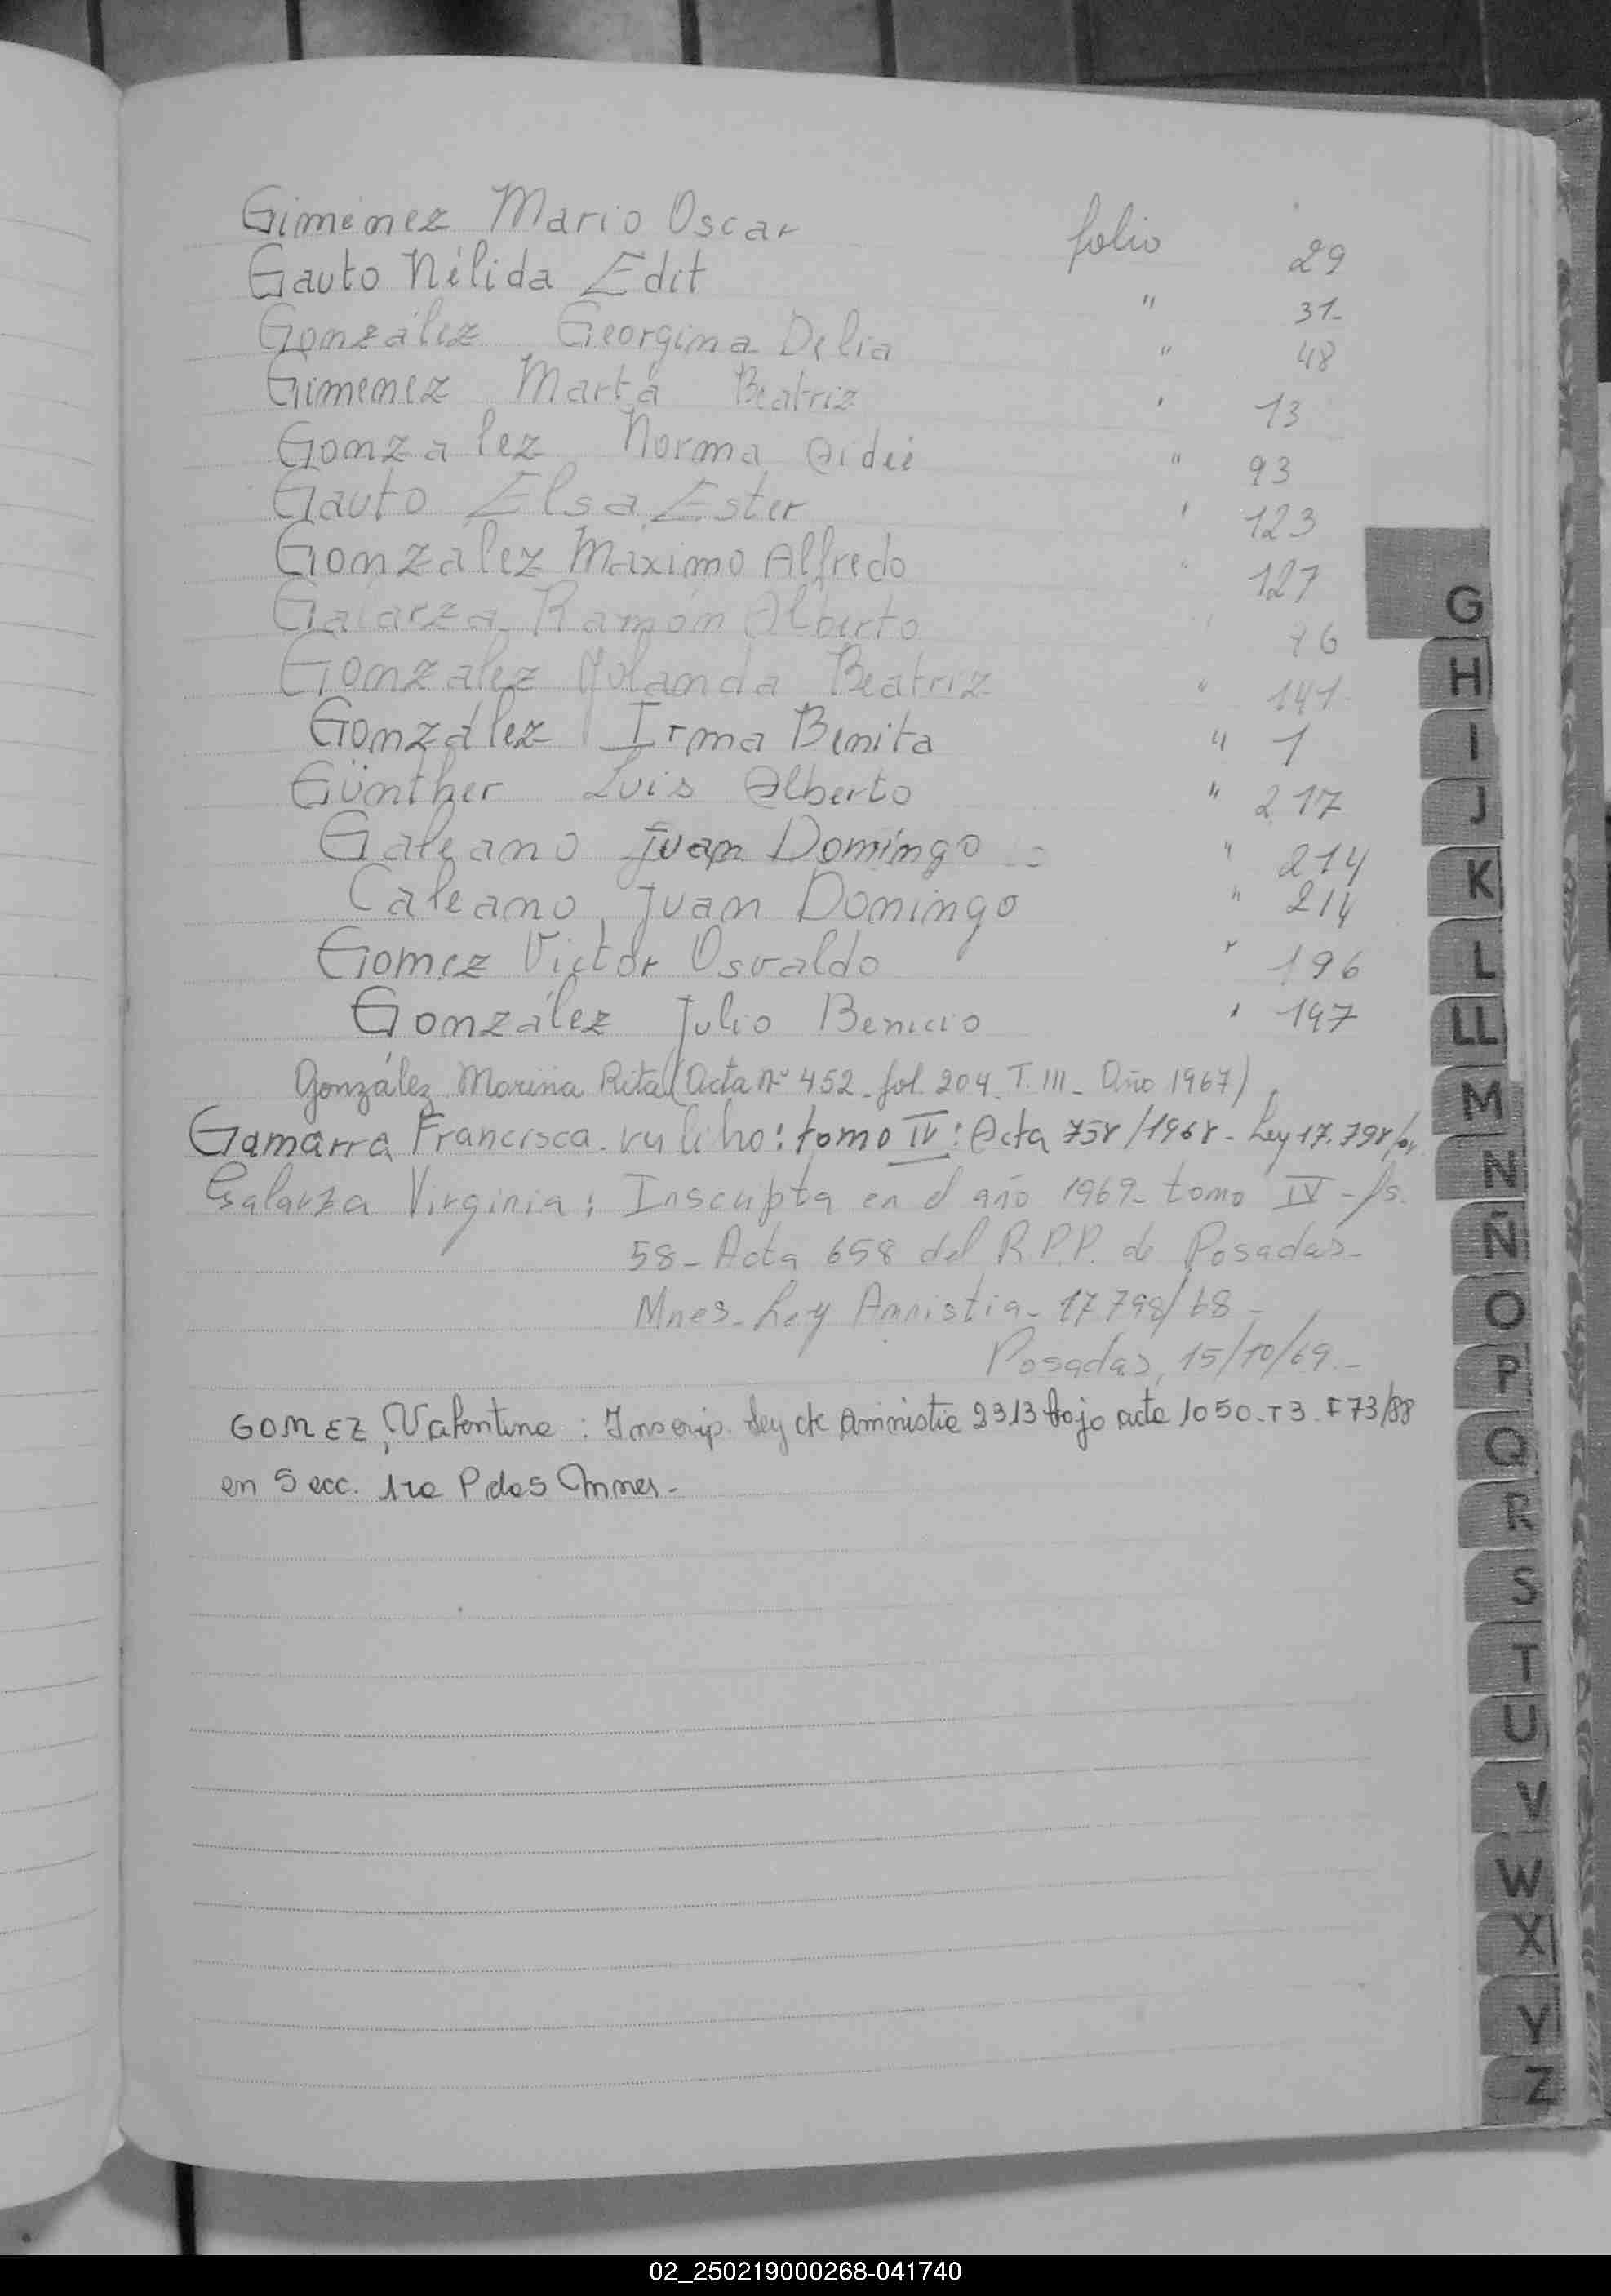 Giménez Mario Oscar folio 29
Gauto Nélida Edit " 31-
González Georgina Delia " 48
Gimenez Marta Beatriz " 13
Gonzalez Norma Aideé " 93
Gauto Elsa Ester " 123
González Máximo Alfredo " 127
Galarza Ramón Alberto " 76
Gonzalez Yolanda Beatriz " 141-
González Irma Benita " 1
Günther Luis Alberto " 217
Galeano Juan Domingo " 214
Caleano, Juan Domingo " 214
Gomez Victor Osvaldo " 196
González Julio Benicio " 197
González Marina Rita (Acta nº 452 - fol. 204 T. III - Año 1967)
Gamarra Francisca : tomo IV : Acta 758/1968 - Ley 17.798/
Galarza Virginia : Inscripta en el año 1969- tomo IV - fs.
58 - Acta 658 del R.P.P. de Posadas -
Mnes - Ley Amnistia - 17798/68 -
Posadas, 15/10/69.-
GOMEZ, Valentina : Inscrip. Ley de Aminístia 2313 bajo acta 1050 - T 3 - F 73/88
en Secc. 1ra Pdas Mnes -
G
H
I
J
K
L
LL
M
N
Ñ
O
P
Q
R
S
T
U
V
W
X
Y
Z
02_250219000268-041740